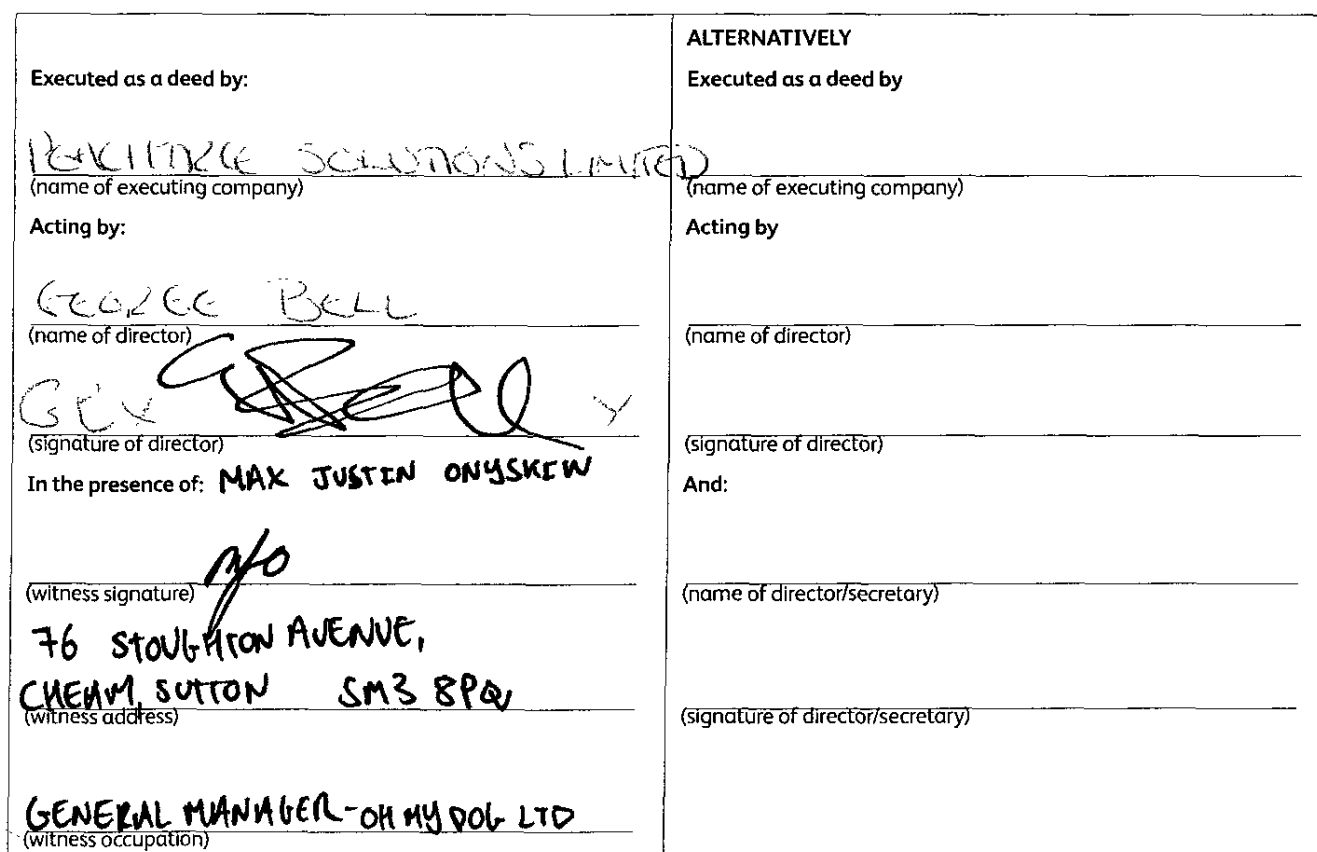 Executed as a deed by:
PEACHTREE SOLUTIONS LIMITED
(name of executing company)
Acting by:
GEORGE BELL
(name of director)
(signature of director)
In the presence of: MAX JUSTIN ONYSKIW
(witness signature)
76 STOUGHTON AVENUE,
CHEAM, SUTTON SM3 8PQ
(witness address)
GENERAL MANAGER - OH MY DOG LTD
(witness occupation)
ALTERNATIVELY
Executed as a deed by
(name of executing company)
Acting by
(name of director)
(signature of director)
And:
(name of director/secretary)
(signature of director/secretary)